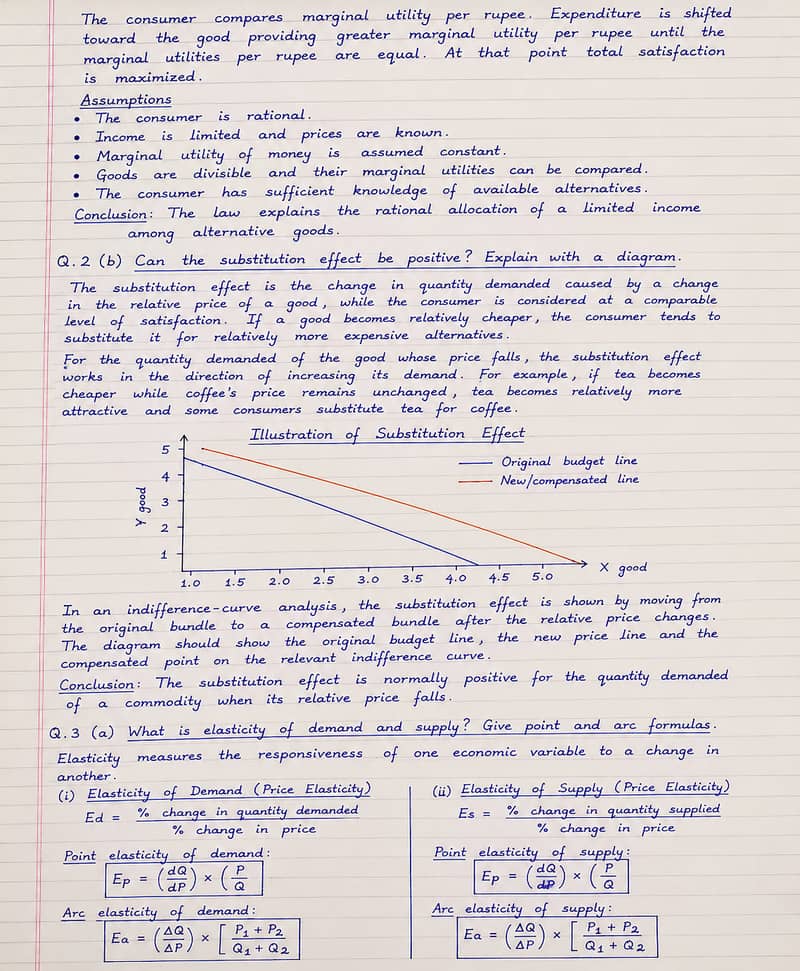 The consumer compares marginal utility per rupee. Expenditure is shifted
toward the good providing greater marginal utility per rupee until the
marginal utilities per rupee are equal. At that point total satisfaction
is maximized.
Assumptions
• The consumer is rational.
• Income is limited and prices are known.
• Marginal utility of money is assumed constant.
• Goods are divisible and their marginal utilities can be compared.
• The consumer has sufficient knowledge of available alternatives.
Conclusion: The law explains the rational allocation of a limited income
among alternative goods.
Q.2 (b) Can the substitution effect be positive? Explain with a diagram.
The substitution effect is the change in quantity demanded caused by a change
in the relative price of a good, while the consumer is considered at a comparable
level of satisfaction. If a good becomes relatively cheaper, the consumer tends to
substitute it for relatively more expensive alternatives.
For the quantity demanded of the good whose price falls, the substitution effect
works in the direction of increasing its demand. For example, if tea becomes
cheaper while coffee's price remains unchanged, tea becomes relatively more
attractive and some consumers substitute tea for coffee.
Illustration of Substitution Effect
Original budget line
New/compensated line
Y good
5
4
3
2
1
1.0 1.5 2.0 2.5 3.0 3.5 4.0 4.5 5.0
X good
In an indifference-curve analysis, the substitution effect is shown by moving from
the original bundle to a compensated bundle after the relative price changes.
The diagram should show the original budget line, the new price line and the
compensated point on the relevant indifference curve.
Conclusion: The substitution effect is normally positive for the quantity demanded
of a commodity when its relative price falls.
Q.3 (a) What is elasticity of demand and supply? Give point and arc formulas.
Elasticity measures the responsiveness of one economic variable to a change in
another.
(i) Elasticity of Demand (Price Elasticity)
Ed = % change in quantity demanded
% change in price
Point elasticity of demand:
Ep = (dQ/dP) × (P/Q
Arc elasticity of demand:
Ea = (ΔQ/ΔP) × [P₁ + P₂/Q₁ + Q₂
(ii) Elasticity of Supply (Price Elasticity)
Es = % change in quantity supplied
% change in price
Point elasticity of supply:
Ep = (dQ/dP) × (P/Q
Arc elasticity of supply:
Ea = (ΔQ/ΔP) × [P₁ + P₂/Q₁ + Q₂